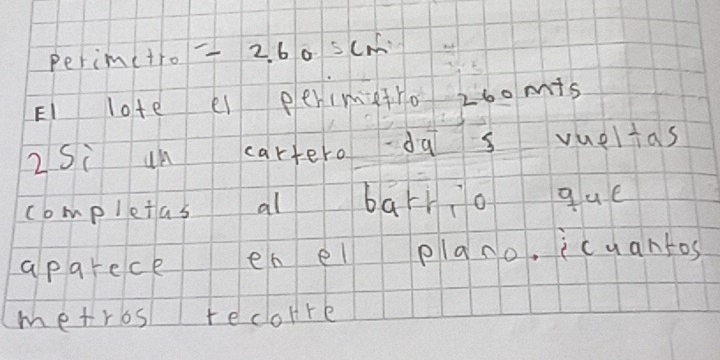 perimetro = 260 scm
El lote el perimetro 260 mts
2 Si un cartero da 5 vueltas
completas al barrio que
aparece en el plano. ¿cuantos
metros recorre